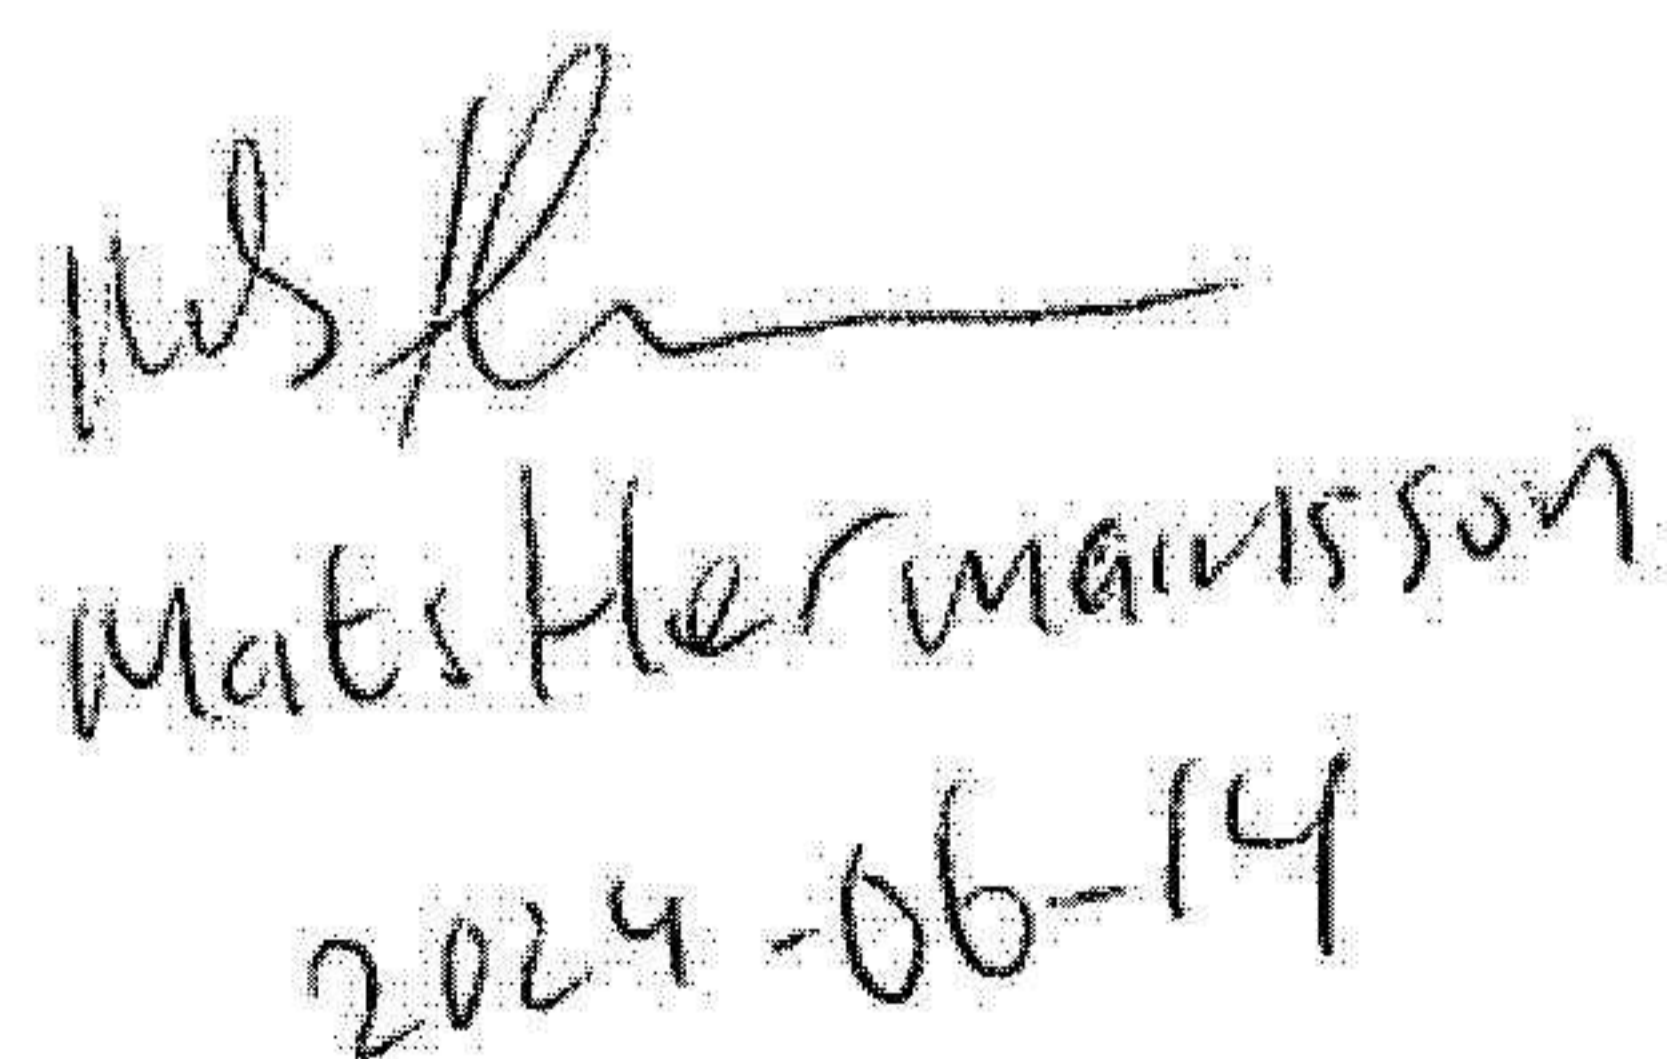 Mats Hermansson
2024-06-14